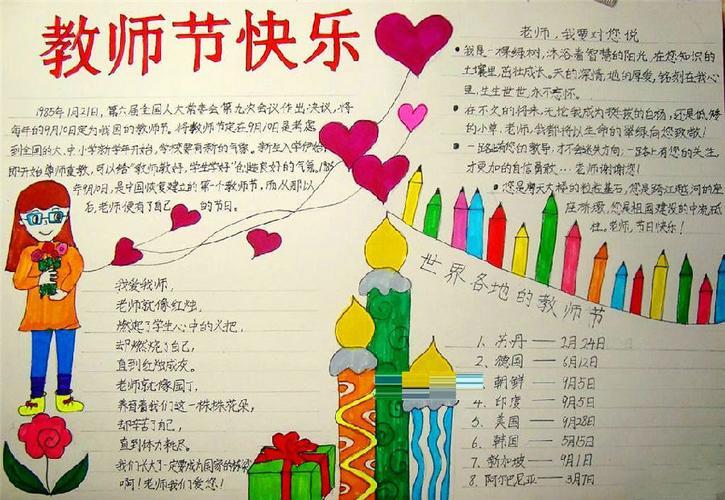 教师节快乐
1985年1月21日,第六届全国人大常委会第九次会议作出决议,将
每年的9月10日定为我国的教师节。将教师节定在9月10日是考虑
到全国的大、中、小学新学年开始,学校要有新的气象。新生入学伊始,
即开始尊师重教,可以给"教师教好,学生学好"创造良好的气氛。
年9月10日,是中国恢复建立的第一个教师节,而从那以
后,老师便有了自己的节日。
老师,我要对您说
我是一棵绿树,沐浴着智慧的阳光,在您知识的
土壤里,茁壮成长。天的深情,地的厚爱,铭刻在我心
里,生生世世,永不忘怀。
在不久的将来,无论我成为挺拔的白杨,还是低矮
的小草,老师,我都将以生命的翠绿向您致敬!
一路上有您的教导,才不会迷失方向;一路上有您的关注
才更加的自信勇敢……老师谢谢您!
您是摩天大楼的粒粒基石,您是跨江越河的座
座桥墩,您是祖国建设的中流砥
柱。老师,节日快乐!
我爱我师,
老师就像红烛,
燃起了学生心中的火把,
却燃烧了自己,
直到红烛成灰。
老师就像园丁,
养育着我们这一株株花朵,
却辛苦了自己,
直到体力耗尽。
我们长大了一定要成为国家的栋梁
啊!老师我们爱您!
世界各地的教师节
1、苏丹——2月24日
2、德国——6月12日
朝鲜——9月5日
4、印度——9月5日
5、美国——9月28日
6、韩国——5月15日
7、新加坡——9月1日
8、阿尔巴尼亚——3月7日